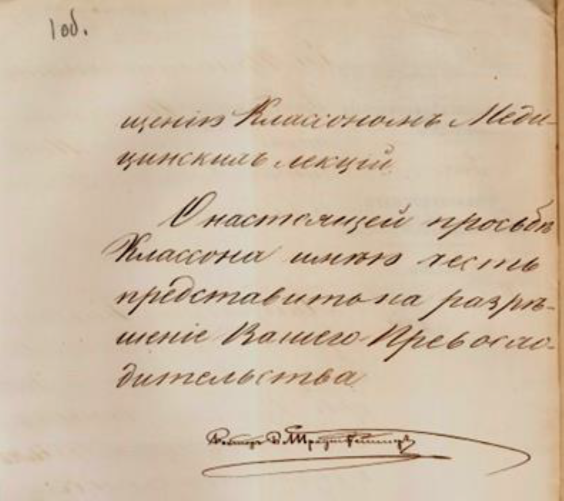 1 об.
щенію Классономъ Меди-
цинскихъ лекцій.
О настоящей просьбѣ
Классона имѣю честь
представить на разрѣ-
шеніе Вашего Превосхо-
дительства
Ректоръ